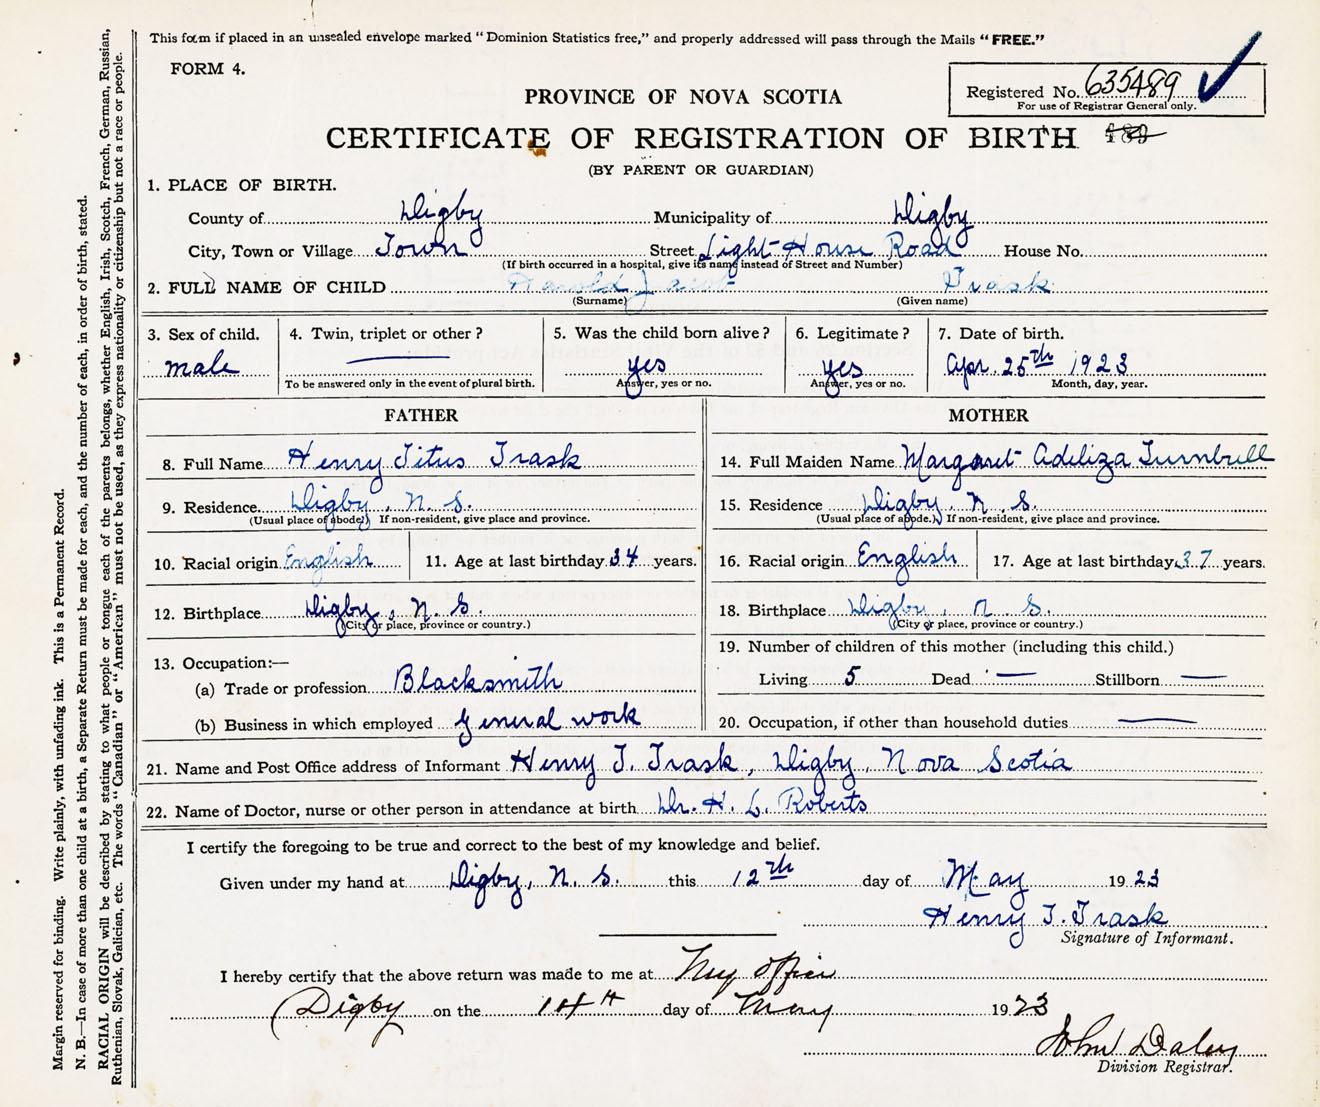 This form if placed in an unsealed envelope marked "Dominion Statistics free," and properly addressed will pass through the Mails "FREE."
FORM 4.
Registered No. 635489
For use of Registrar General only.
PROVINCE OF NOVA SCOTIA
CERTIFICATE OF REGISTRATION OF BIRTH
(BY PARENT OR GUARDIAN)
1. PLACE OF BIRTH.
County of Digby Municipality of Digby
City, Town or Village Town Street Light-House Road House No.
(If birth occurred in a hospital, give its name instead of Street and Number)
2. FULL NAME OF CHILD Harold Jacob Trask
(Surname) (Given name)
3. Sex of child. 4. Twin, triplet or other? 5. Was the child born alive? 6. Legitimate? 7. Date of birth.
male — yes yes Apr. 25th 1923
To be answered only in the event of plural birth. Answer, yes or no. Answer, yes or no. Month, day, year.
FATHER MOTHER
8. Full Name Henry Titus Trask 14. Full Maiden Name Margaret Adeliza Turnbull
9. Residence Digby, N. S. 15. Residence Digby, N. S.
(Usual place of abode.) If non-resident, give place and province. (Usual place of abode.) If non-resident, give place and province.
10. Racial origin English 11. Age at last birthday 34 years. 16. Racial origin English 17. Age at last birthday 37 years.
12. Birthplace Digby, N. S. 18. Birthplace Digby, N. S.
(City or place, province or country.) (City or place, province or country.)
13. Occupation:— 19. Number of children of this mother (including this child.)
(a) Trade or profession Blacksmith Living 5 Dead — Stillborn —
(b) Business in which employed General work 20. Occupation, if other than household duties —
21. Name and Post Office address of Informant Henry T. Trask, Digby, Nova Scotia
22. Name of Doctor, nurse or other person in attendance at birth Dr. H. L. Roberts
I certify the foregoing to be true and correct to the best of my knowledge and belief.
Given under my hand at Digby, N. S. this 12th day of May 1923
Henry T. Trask
Signature of Informant.
I hereby certify that the above return was made to me at My office
Digby on the 14th day of May 1923
John Daley
Division Registrar.
Margin reserved for binding. Write plainly, with unfading ink. This is a Permanent Record.
N. B.—In case of more than one child at a birth, a Separate Return must be made for each, and the number of each, in order of birth, stated.
RACIAL ORIGIN will be described by stating to what people or tongue each of the parents belongs, whether English, Irish, Scotch, French, German, Russian,
Ruthenian, Slovak, Galician, etc. The words "Canadian" or "American" must not be used, as they express nationality or citizenship but not a race or people.